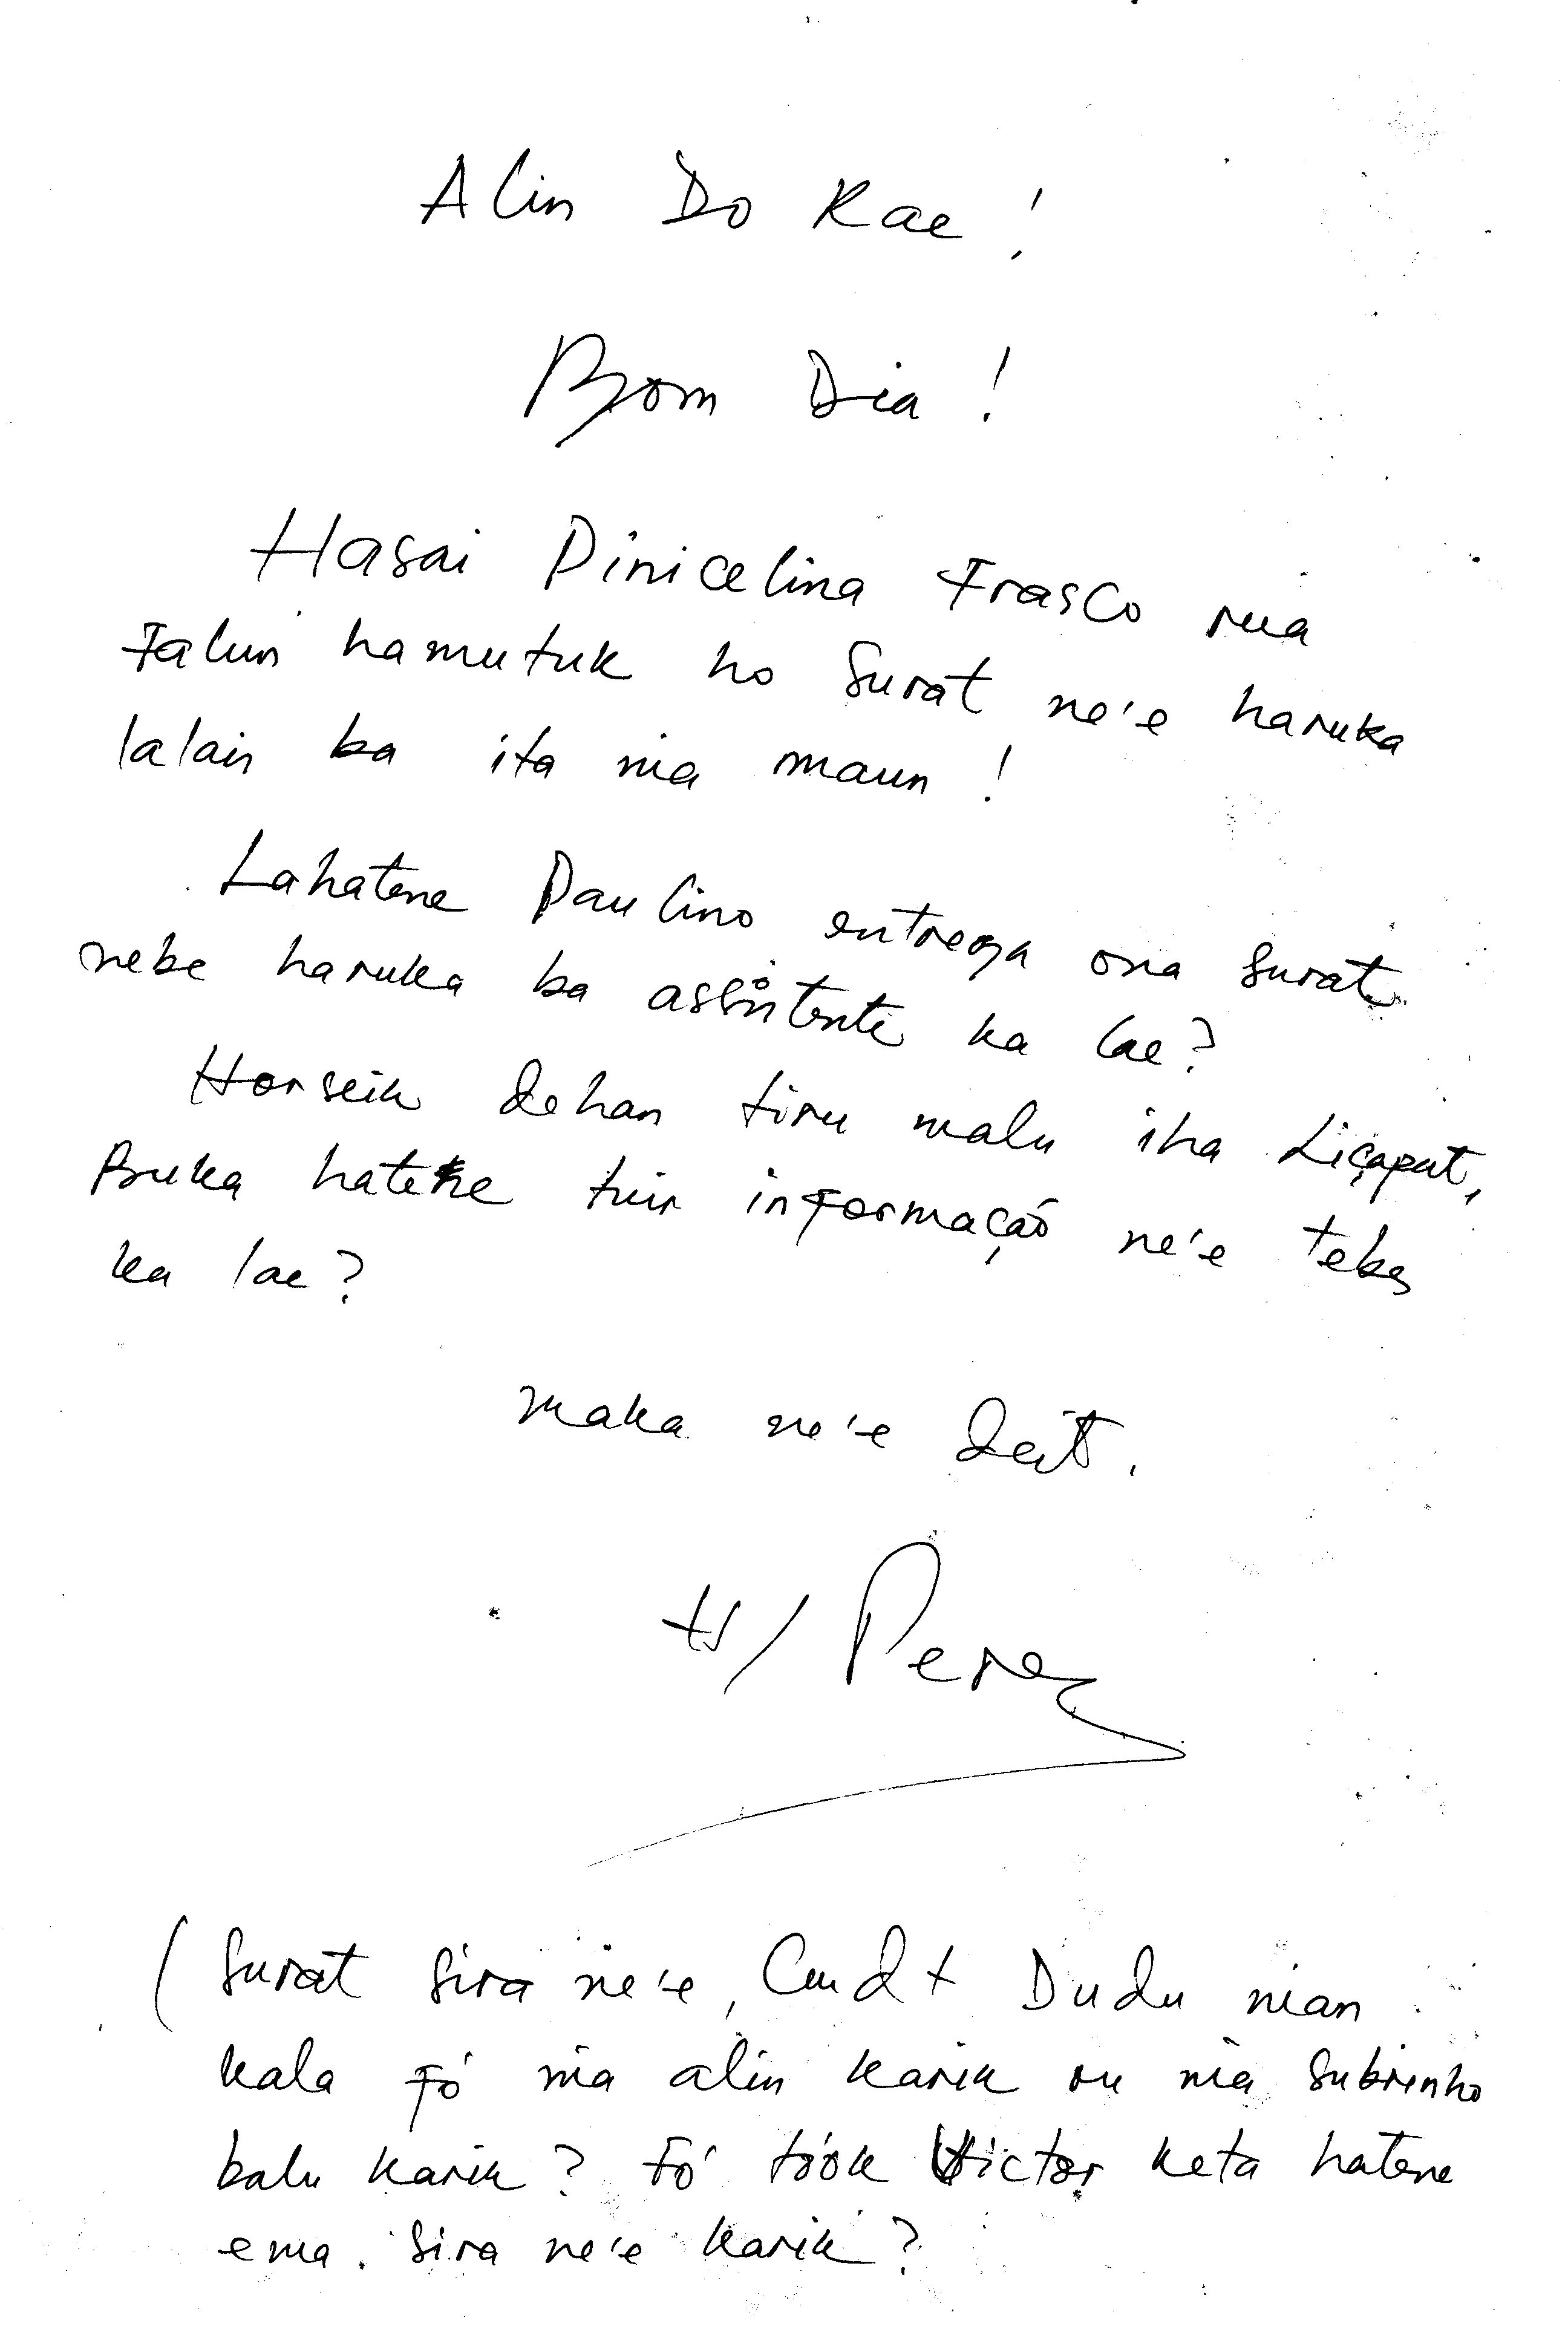 Alin Do Kae !
Bom Dia !
Hasai Pinicelina Frasco rua
Falun hamutuk ho Surat ne'e haruka
lalais ba ita nia maun !
Lahatene Paulino entrega ona surat
nebe haruka ba assistente ka lae?
Horseik dehan tiru malu iha Liçapat,
Buka hatene tuir informação ne'e tebes
ka lae?
Maka ne'e deit.
H/ Perez
(Surat sira ne'e, Cmdt Dudu nian
kala fó nia alin karik ou nia subrinho
balu karik? Fó took Victor keta hatene
ema sira ne'e karik?